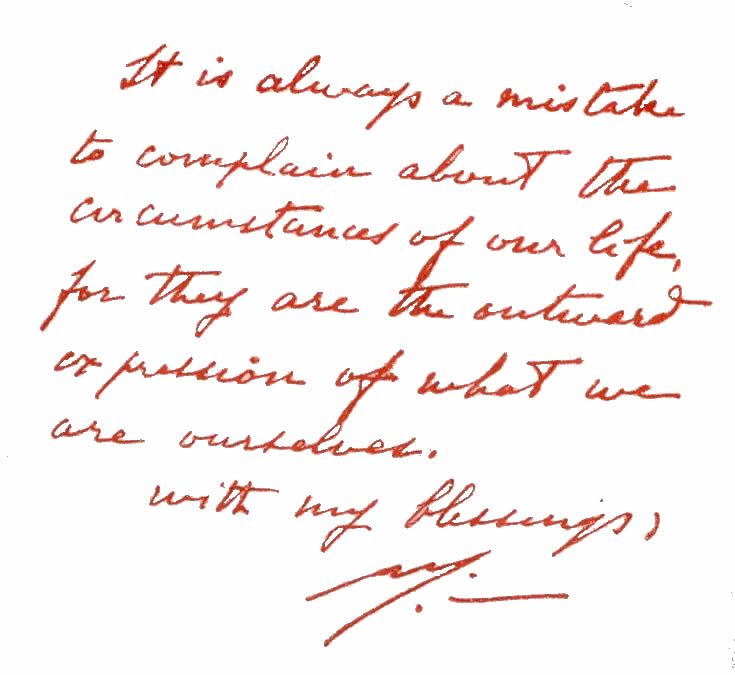 It is always a mistake
to complain about the
circumstances of our life,
for they are the outward
expression of what we
are ourselves.
with my blessings,